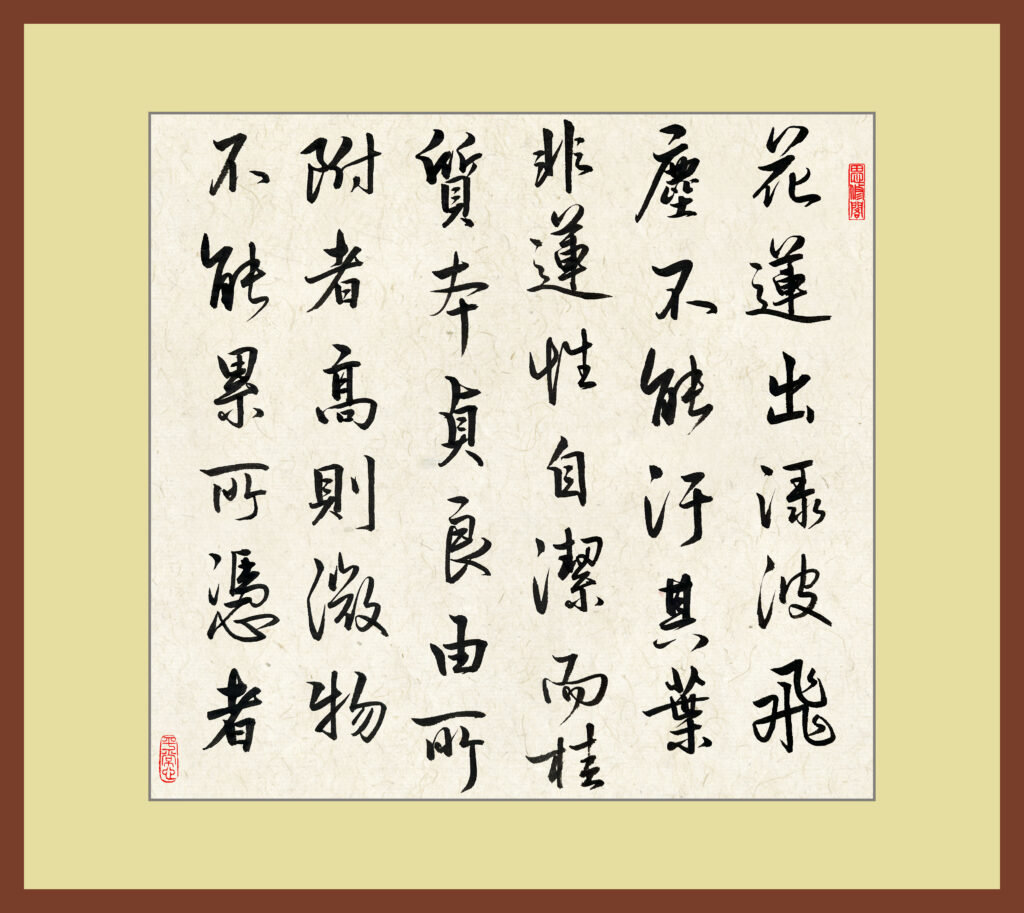 思修閣
花蓮出渌波飛
塵不能汙其葉
非蓮性自潔而桂
質本貞良由所
附者高則微物
不能累所憑者
平常心